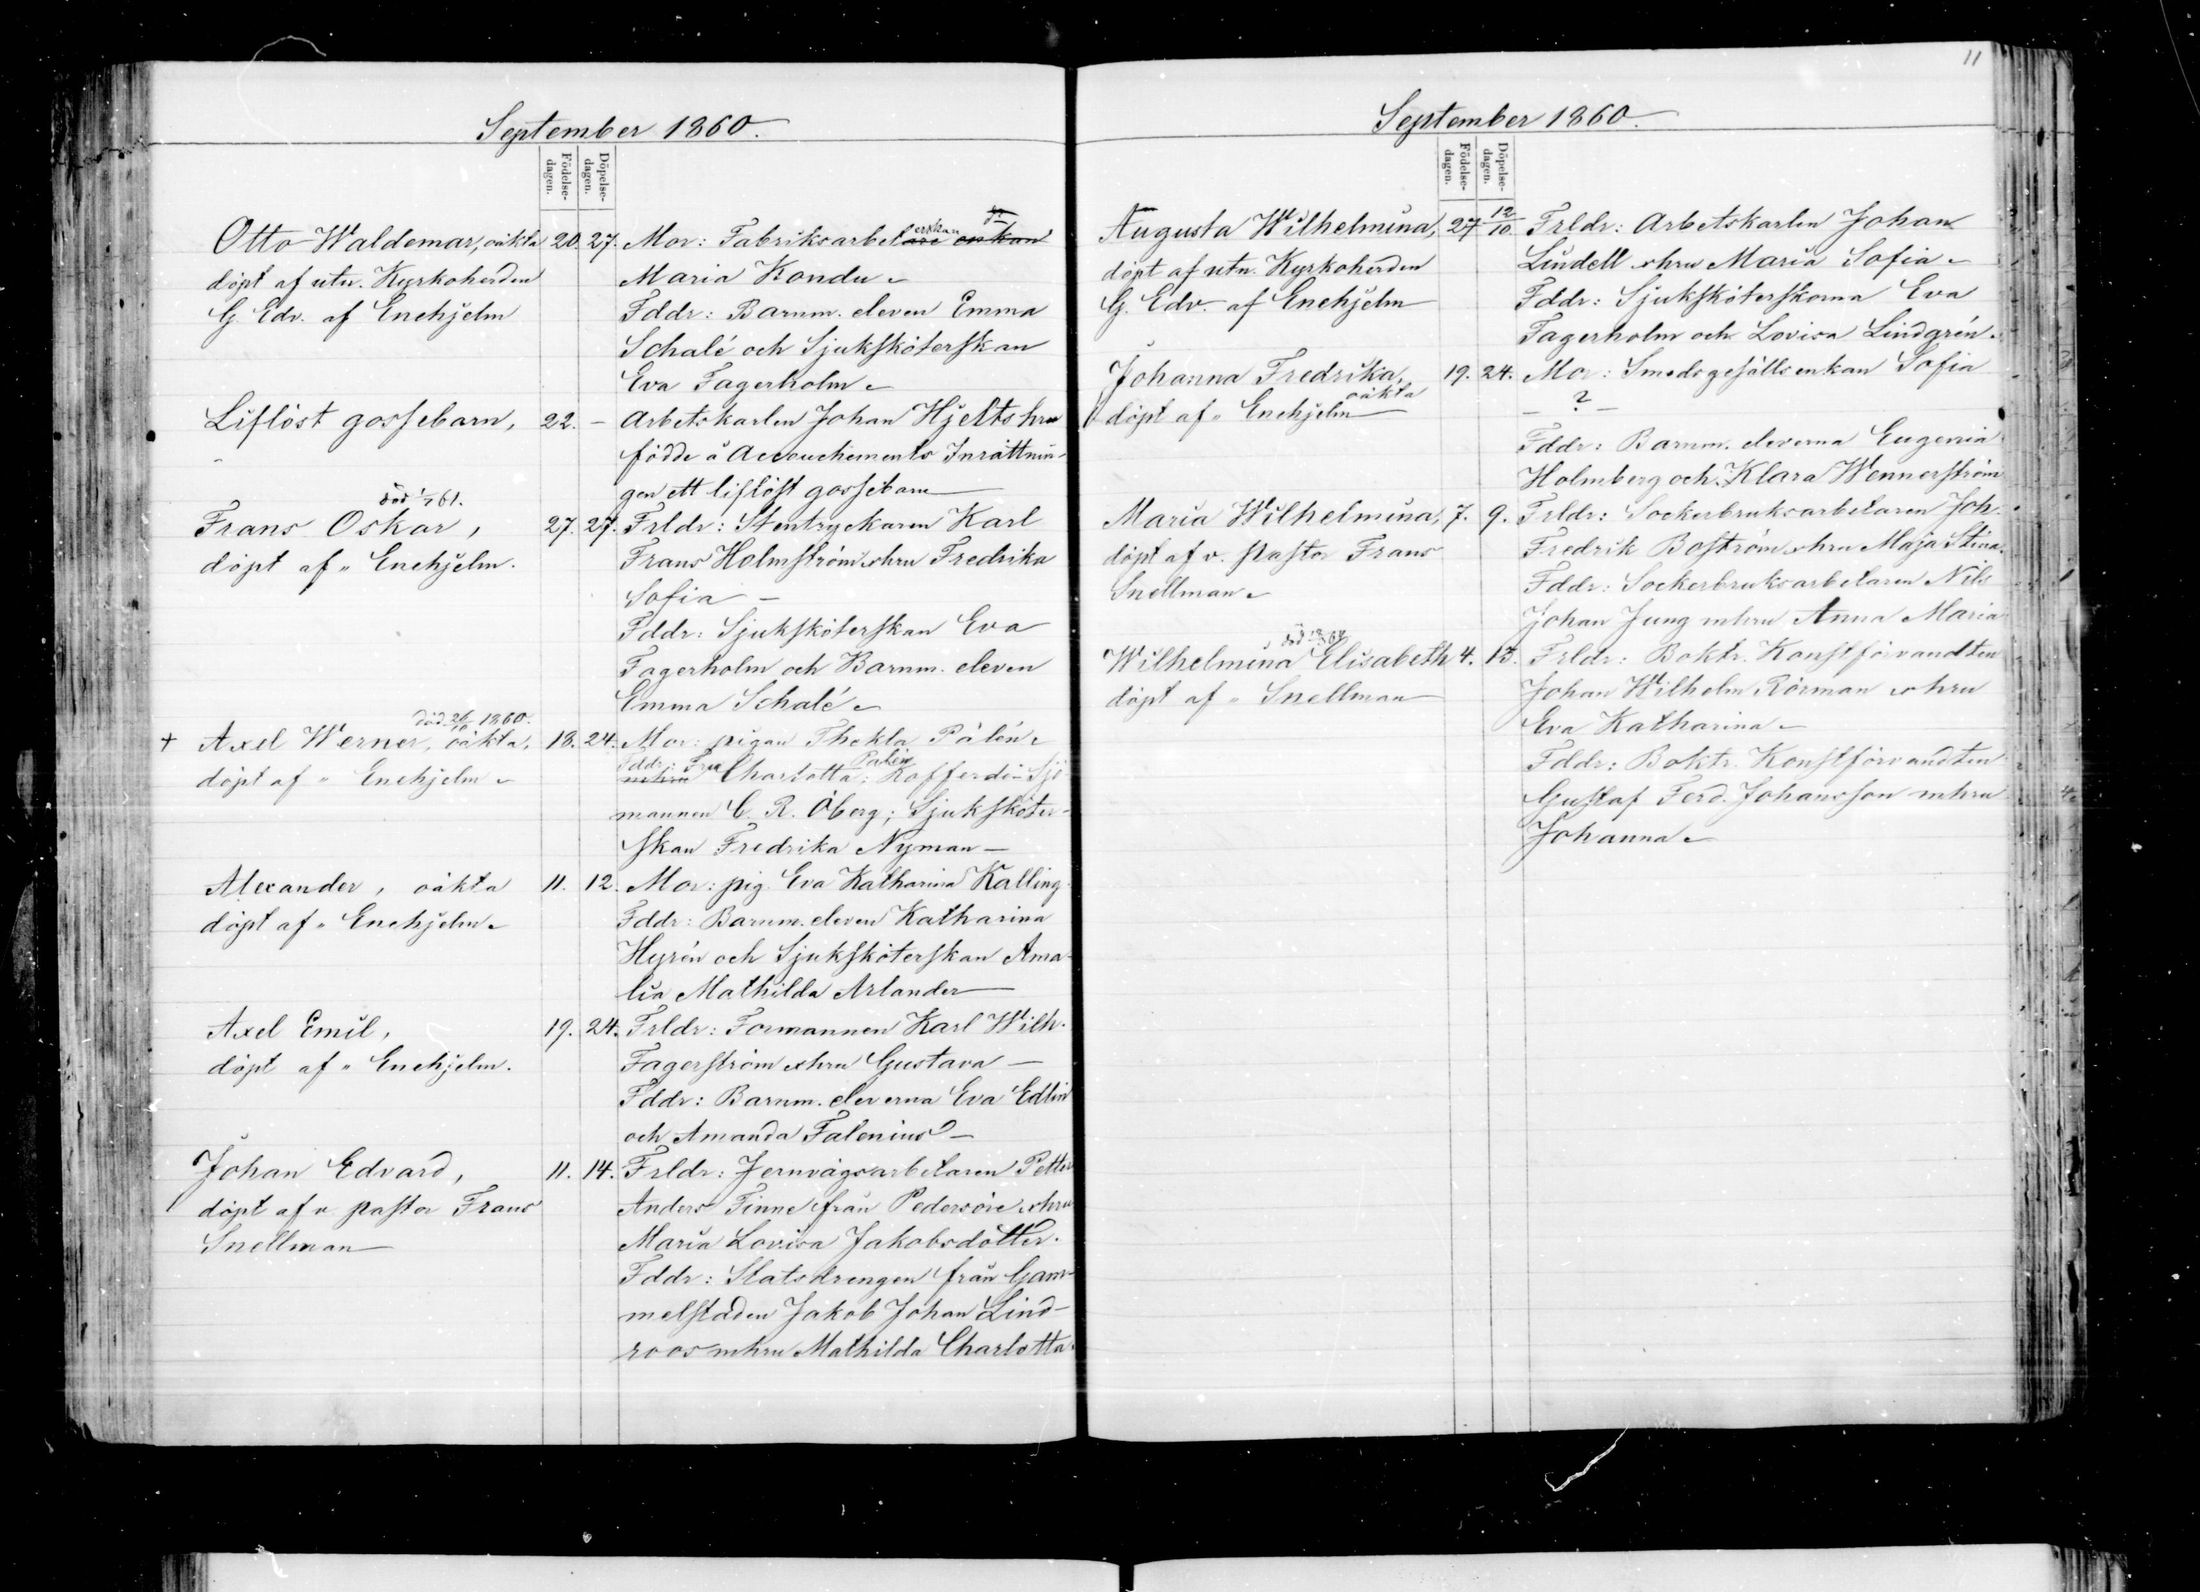 September 1860.
Födelse-dagen. Döpelse-dagen.
Otto Waldemar, oäkta 20. 27. Mor: Fabriksarbeterskan
döpt af utn. Kyrkoherden Maria Kondu
G. Edv. af Enehjelm Fddr: Barnm. eleven Emma
Schalé och Sjuksköterskan
Eva Fagerholm
Liflöst gossebarn, 22. - Arbetskarlen Johan Hjelts hru
födde å Accouchements Inrättnin-
gen ett liflöst gossebarn
död 61.
Frans Oskar, 27. 27. Frldr: Stentryckaren Karl
döpt af „ Enehjelm. Frans Holmström o hru Fredrika
Sofia -
Fddr: Sjuksköterskan Eva
Fagerholm och Barnm. eleven
Emma Schalé
död 26/10 1860.
+ Axel Werner, oäkta, 18. 24. Mor: pigan Thekla Pålén
Fddr: Fru Charlotta Palén; Kofferdi-Sjö
döpt af „ Enehjelm
mannen C. R. Öberg; Sjuksköter-
skan Fredrika Nyman
Alexander, oäkta 11. 12. Mor: pig. Eva Katharina Kalling
döpt af „ Enehjelm Fddr: Barnm. eleven Katharina
Hyrén och Sjuksköterskan Ama-
lia Mathilda Arlander
Axel Emil, 19. 24. Frldr: Formannen Karl Wilh.
döpt af „ Enehjelm. Fagerström o hru Gustava -
Fddr: Barnm. eleverna Eva Edlin
och Amanda Falenius -
Johan Edvard, 11. 14. Frldr: Jernvägsarbetaren Petter
döpt af v pastor Frans Anders Finne från Pedersöre o hru
Snellman Maria Lovisa Jakobsdotter.
Fddr: Statsdrengen från Gam-
melstaden Jakob Johan Lind-
roos m hru Mathilda Charlotta.
11
September 1860.
Födelse-dagen. Döpelse-dagen.
Augusta Wilhelmina, 27 12/10 Frldr: Arbetskarlen Johan
döpt af utn. Kyrkoherden Lindell o hru Maria Sofia
G. Edv. af Enehjelm Fddr: Sjuksköterskorna Eva
Fagerholm och Lovisa Lindgrén.
Johanna Fredrika, oäkta 19. 24. Mor: Smedsgesällsenkan Sofia
döpt af „ Enehjelm - ? -
Fddr: Barnm. eleverna Eugenia
Holmberg och Klara Wennerström
Maria Wilhelmina, 7. 9. Frldr: Sockerbruksarbetaren Joh.
döpt af v. pastor Frans Fredrik Boström o hru Maja Stina.
Snellman Fddr: Sockerbruksarbetaren Nils
Johan Jung m hru Anna Maria
död
Wilhelmina Elisabeth 4. 13. Frldr: Boktr. Konstförvandten
döpt af „ Snellman Johan Wilhelm Rörman o hru
Eva Katharina
Fddr: Boktr. Konstförvandten
Gustaf Ferd. Johansson m hru
Johanna